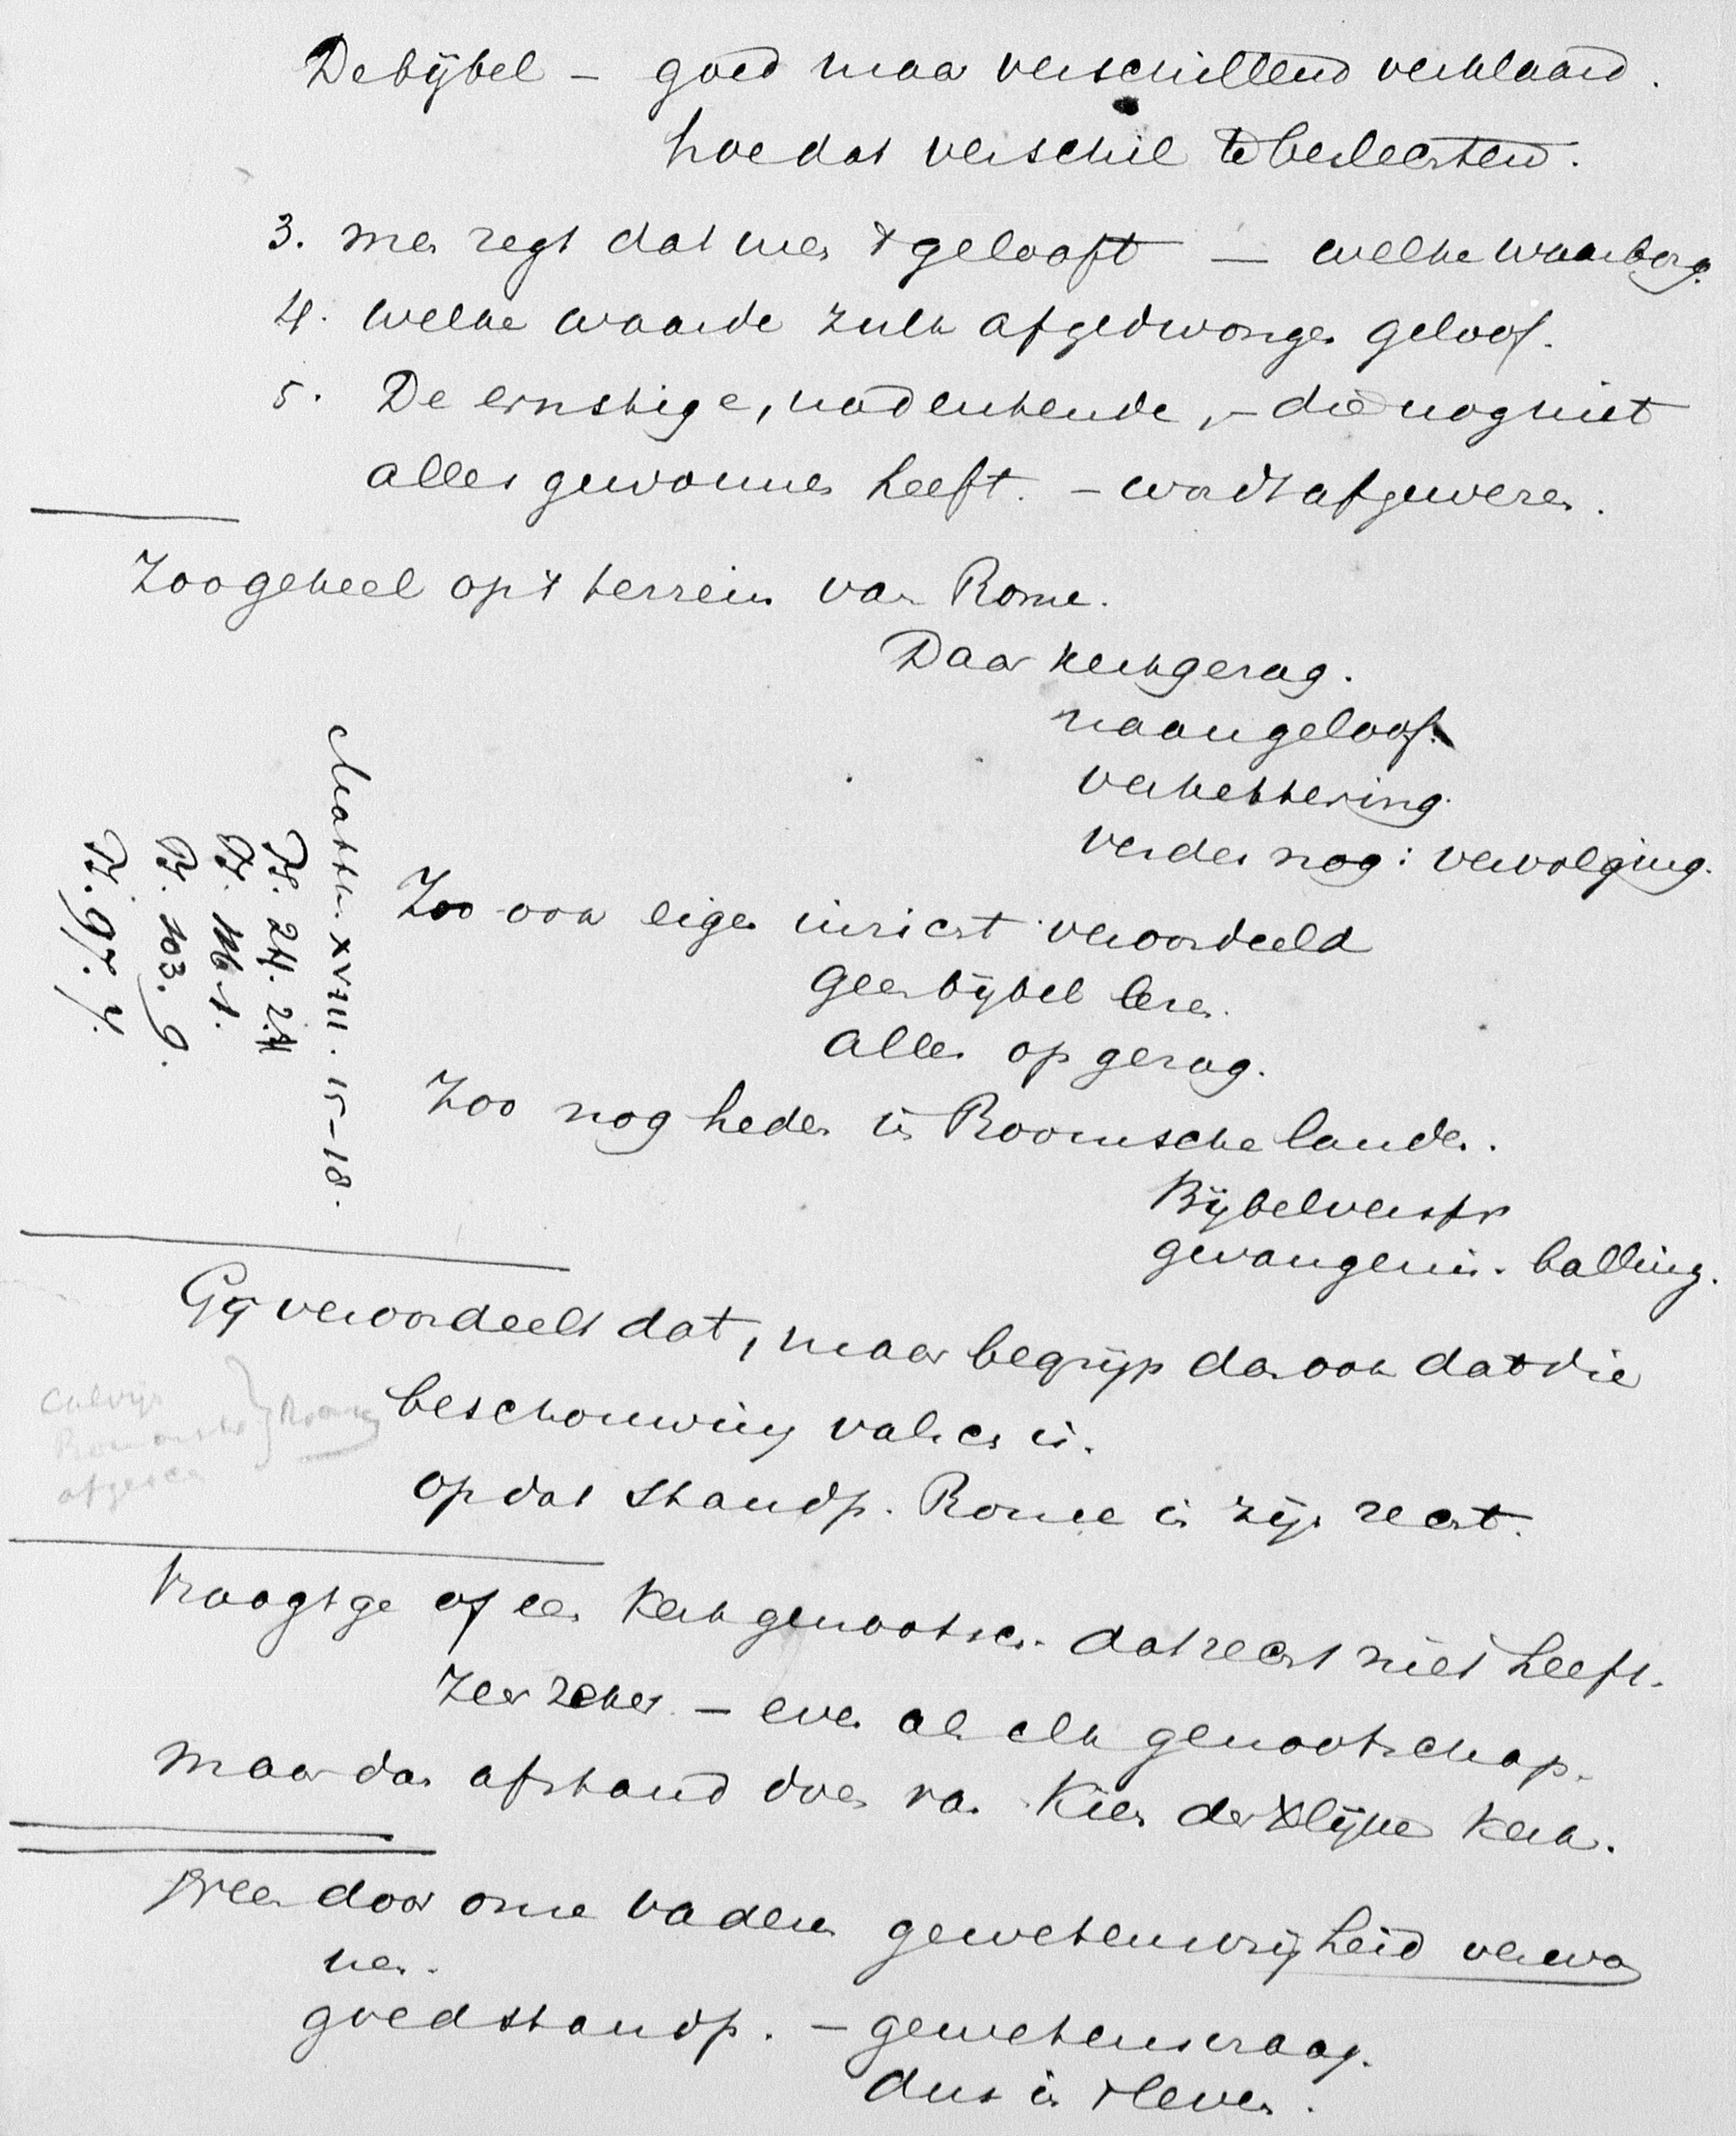 De bijbel — goed maar verschillend verklaard.
hoe dat verschil te beslechten.
3. men zegt dat men 't gelooft — welke waarborg.
4. welke waarde zulk afgedwongen geloof.
5. De ernstige, nadenkende, – die nog niet
alles gewonnen heeft. – wordt afgewezen.
Zoo geheel op 't terrein van Rome.
Daar kerkgezag.
naamgeloof.
verkettering.
verder nog: vervolging.
Zoo ook eigen inzicht veroordeeld
Geen bijbel lezen.
alles op gezag.
Zoo nog heden in Roomsche landen.
Bijbelverspr
gevangenis. balling.
Matth. XVIII. 15–18.
Ps. 24. 2.
Ps. 116. 1.
Ps. 103. 9.
Ps. 97. 7.
Gij veroordeelt dat, maar begrijp dan ook dat die
beschouwing valsch is.
Calvijn
Rome
op dat standp. Rome in zijn recht.
Vraagt ge of een Kerkgenootsch. dat recht niet heeft.
Zeer zeker. – even als elk genootschap.
Maar dan afstand doen van Kien der Xlijke Kerk.
door onze vaderen gewetensvrijheid verwor
nen.
goed standp. – gewetensvraag.
dus in 't leven.